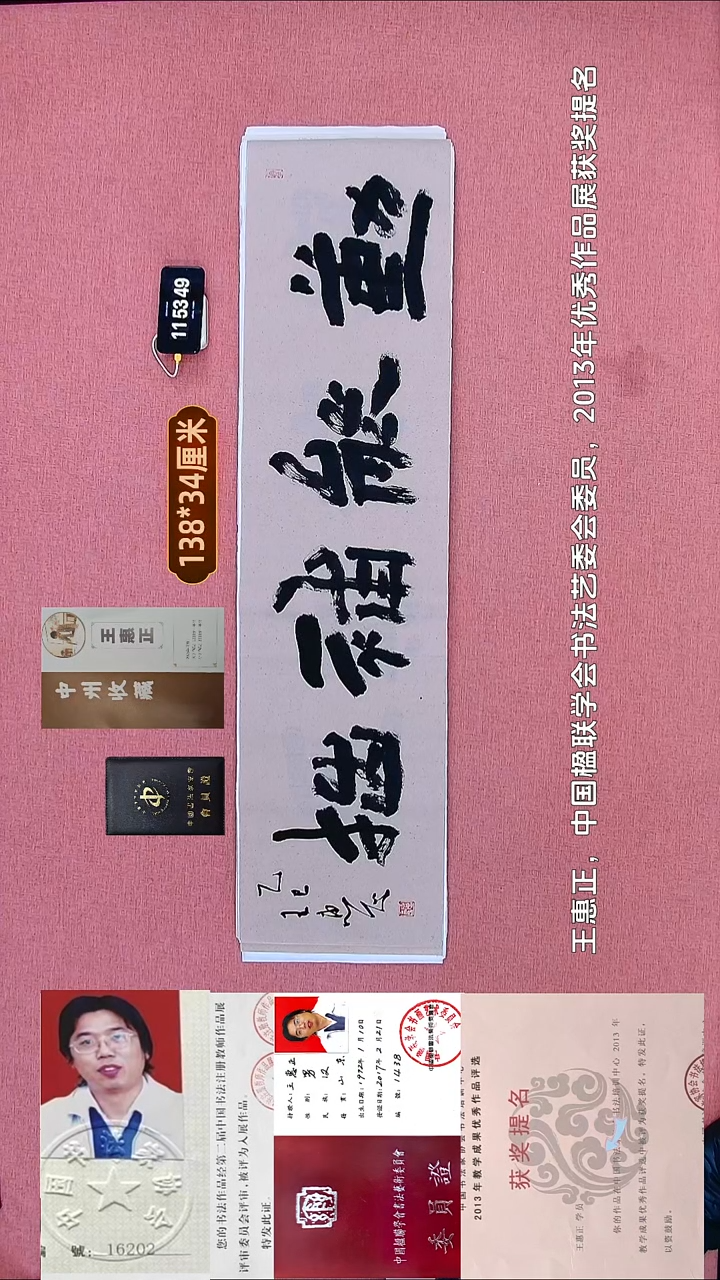 勤能補拙
乙巳
王惠正
11 53 49
138*34厘米
王惠正
中州收藏
會員證
王惠正，中国楹联学会书法艺委会委员，2013年优秀作品展获奖提名
16202
您的书法作品经第二届中国书法注册教师作品展
评审委员会评审，被评为入展作品。
特发此证。
持证人：王惠正
性别：男
民族：汉
籍贯：山东
出生日期：1972年1月10日
发证日期：2017年2月21日
编号：1438
中國楹聯學會書法藝術委員會
委員證
2013年教学成果优秀作品评选
获奖提名
王惠正 学员
教学成果优秀作品评选中被评为获奖提名，特发此证，
以资鼓励。